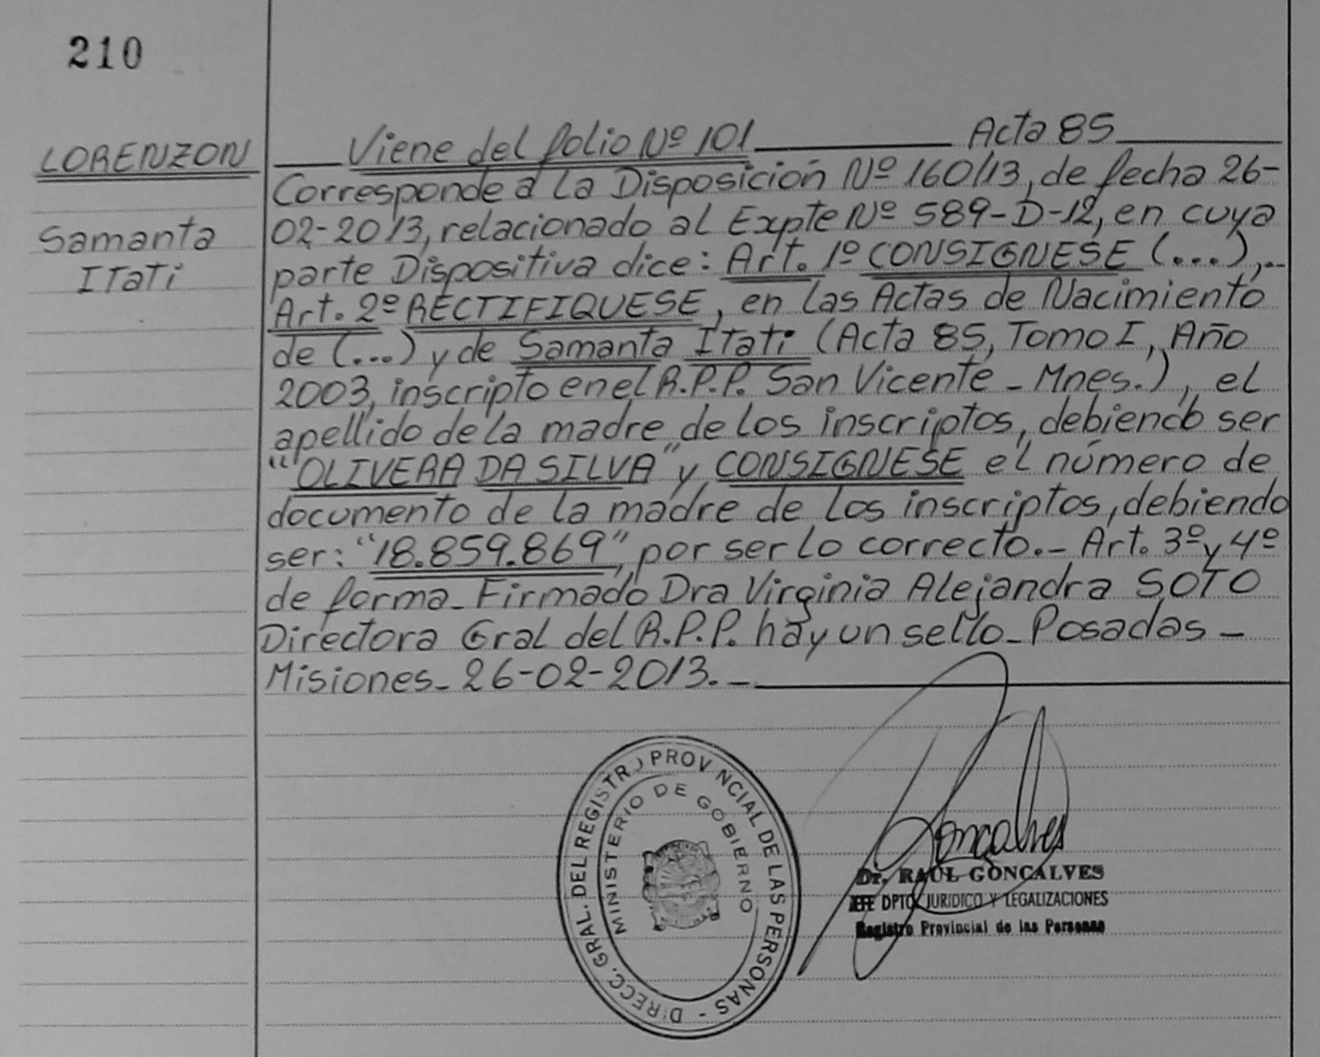 210
LORENZON
Samanta
Itati
Viene del folio Nº 101 Acta 85
Corresponde a la Disposición Nº 160/13, de fecha 26-
02-2013, relacionado al Expte Nº 589-D-12, en cuya
parte Dispositiva dice: Art. 1º CONSIGNESE (...),..
Art. 2º RECTIFIQUESE, en las Actas de Nacimiento
de (...) y de Samanta Itati (Acta 85, Tomo I, Año
2003, inscripto en el R.P.P. San Vicente - Mnes.), el
apellido de la madre de los inscriptos, debiendo ser
"OLIVERA DA SILVA" y CONSIGNESE el número de
documento de la madre de los inscriptos, debiendo
ser: "18.859.869", por ser lo correcto.- Art. 3º y 4º
de forma - Firmado Dra Virginia Alejandra SOTO
Directora Gral del R.P.P. hay un sello - Posadas -
Misiones - 26-02-2013. -
DIRECC. GRAL. DEL REGISTRO PROVINCIAL DE LAS PERSONAS -
MINISTERIO DE GOBIERNO
Goncalves
Dr. RAUL GONCALVES
JEFE DPTO. JURIDICO Y LEGALIZACIONES
Registro Provincial de las Personas